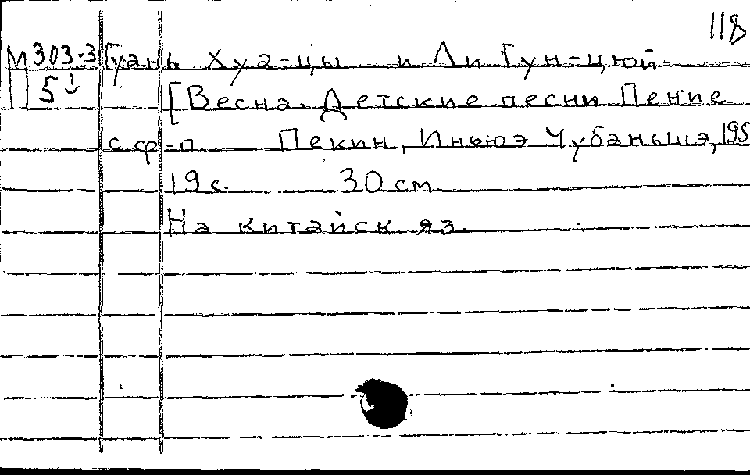 118
М 303-3 Гуань Хуа-цы и Ли Гун-цюй
5 [Весна. Детские песни Пение
с ф-п Пекин, Иньюэ Чубаньшэ, 195
19 с. 30 см.
На китайск яз.